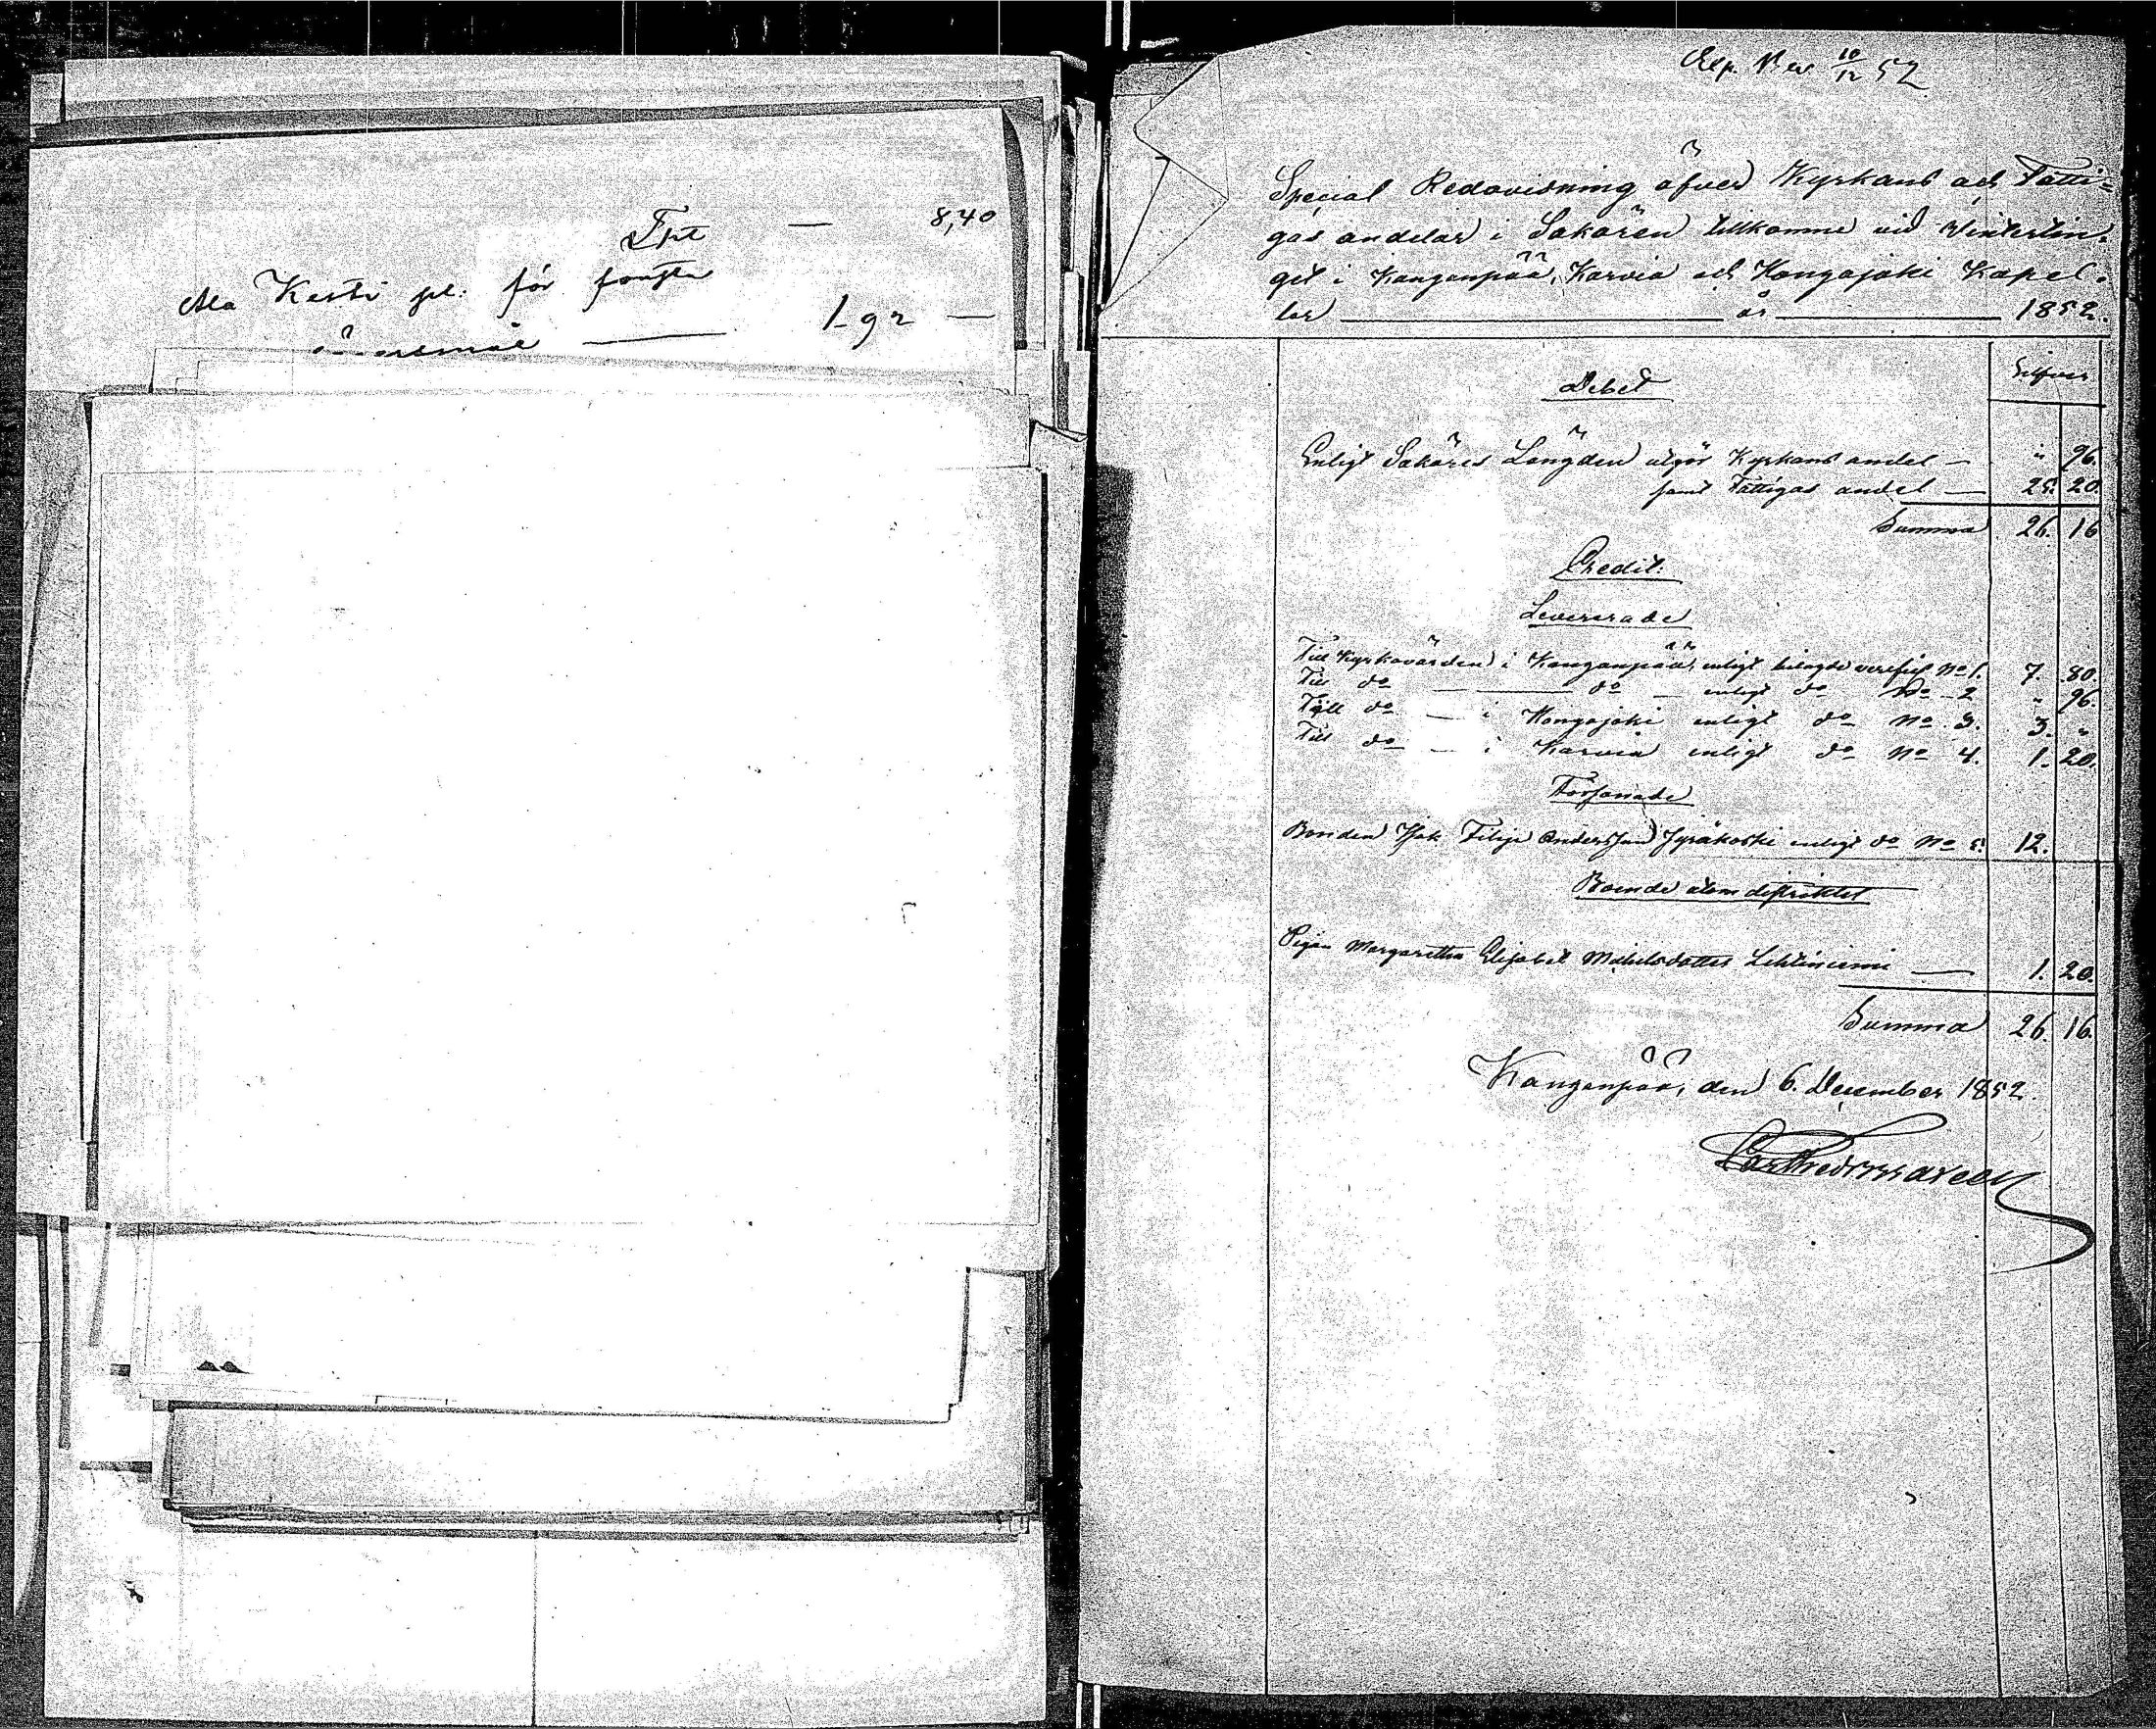 Tpt — 8,40
Ala Kesti pl. för
1 92 —
Exp. Rev 10/12 52
Special Redovisning öfver Kyrkans och Fatti=
gas andelar i Sakören tillkomne vid Wintertin-
get i Kanganpää, Karvia och Hongojoki Kapel-
lar — år — 1852.
Debet
Silfver
Enligt Saköres Längden utgör Kyrkans andel — " 96.
samt Fattigas andel — 25. 20.
Summa 26. 16
Credit:
Levererade
Till Kyrkovärden i Kanganpää, enligt bilagde verific No 1. 7. 80.
Till do — do — enligt do No 2 " 96.
Till do — i Hongojoki enligt do No 3. 3. "
Till do — i Karvia enligt do No 4. 1. 20.
Försonade
Bonden Isak Filip Andersson Jyräkoski enligt do No 5. 12.
Boende utom distriktet
Pigan Margaretha Elisabet Mickelsdotter Lehtiniemi — 1. 20.
Summa 26. 16.
Kanganpää, den 6. December 1852.